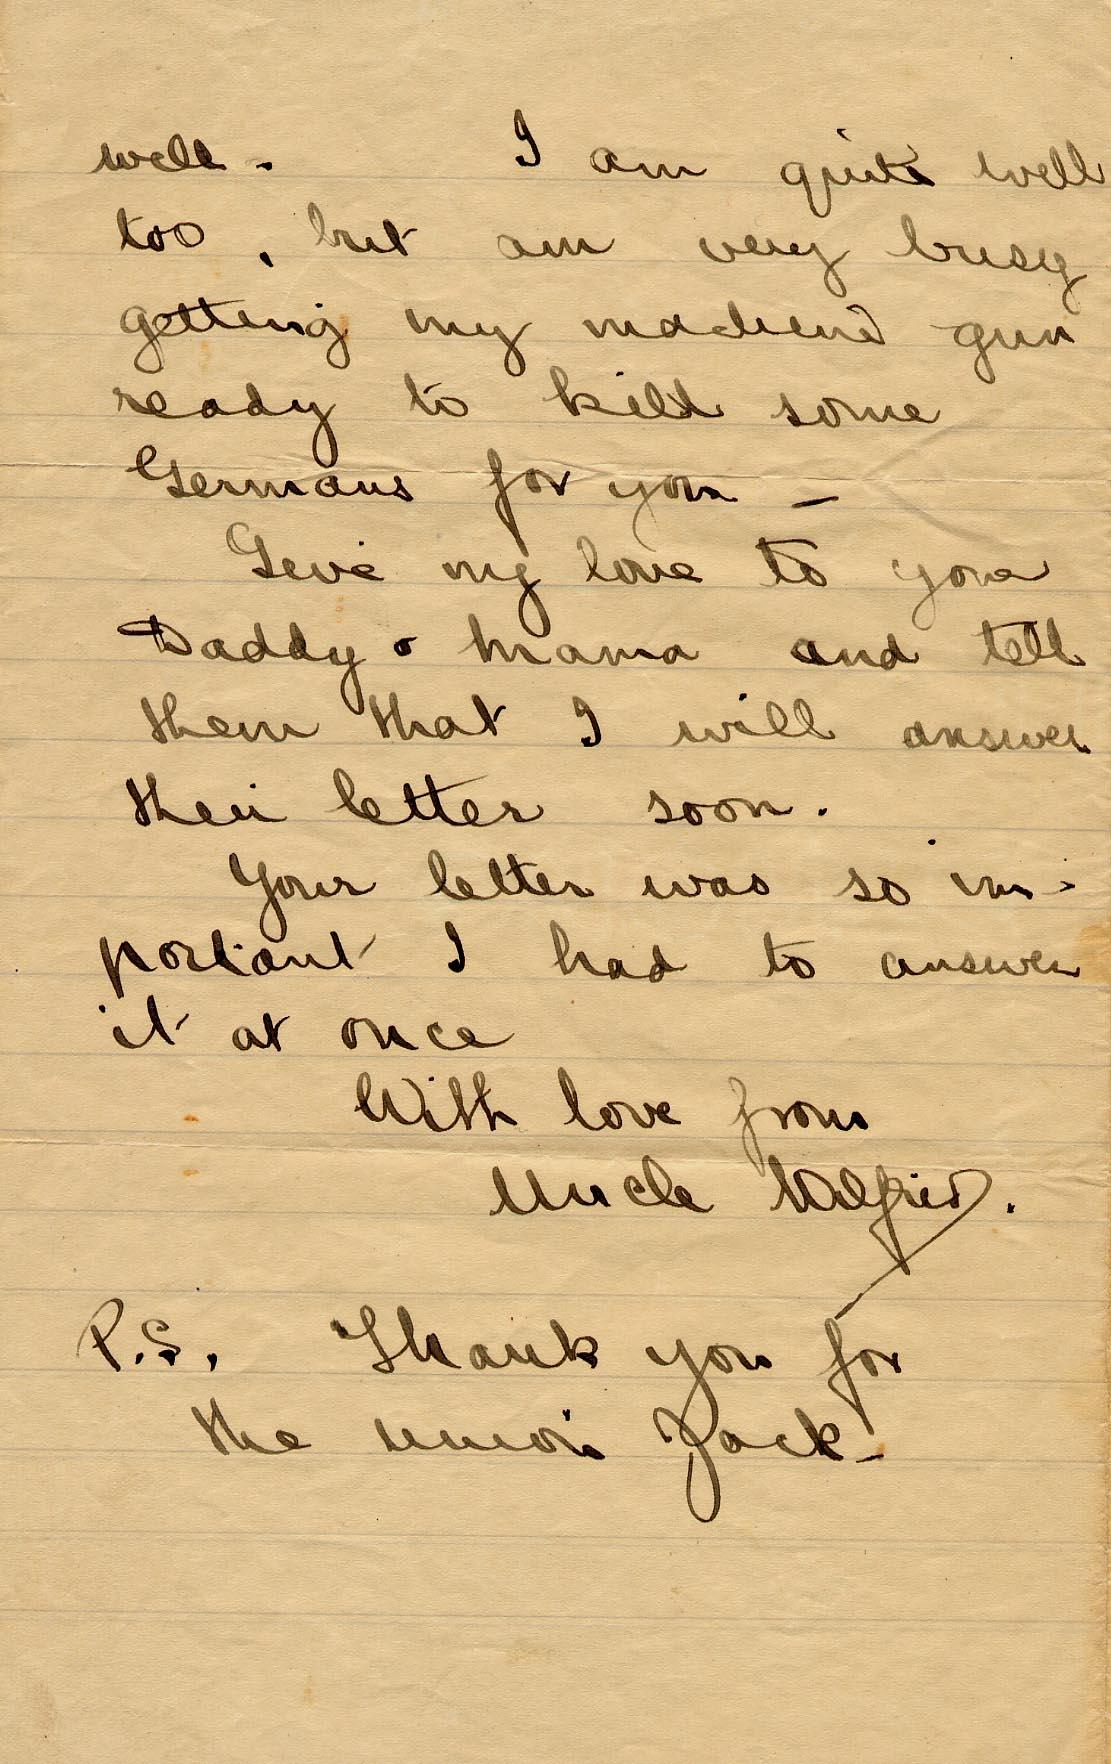 well. I am quite well
too, but am very busy
getting my machine gun
ready to kill some
Germans for you —
Give my love to your
Daddy & Mama and tell
them that I will answer
their letter soon.
Your letter was so im-
portant I had to answer
it at once
With love from
Uncle Wilfrid.
P.S. Thank you for
the union Jack —